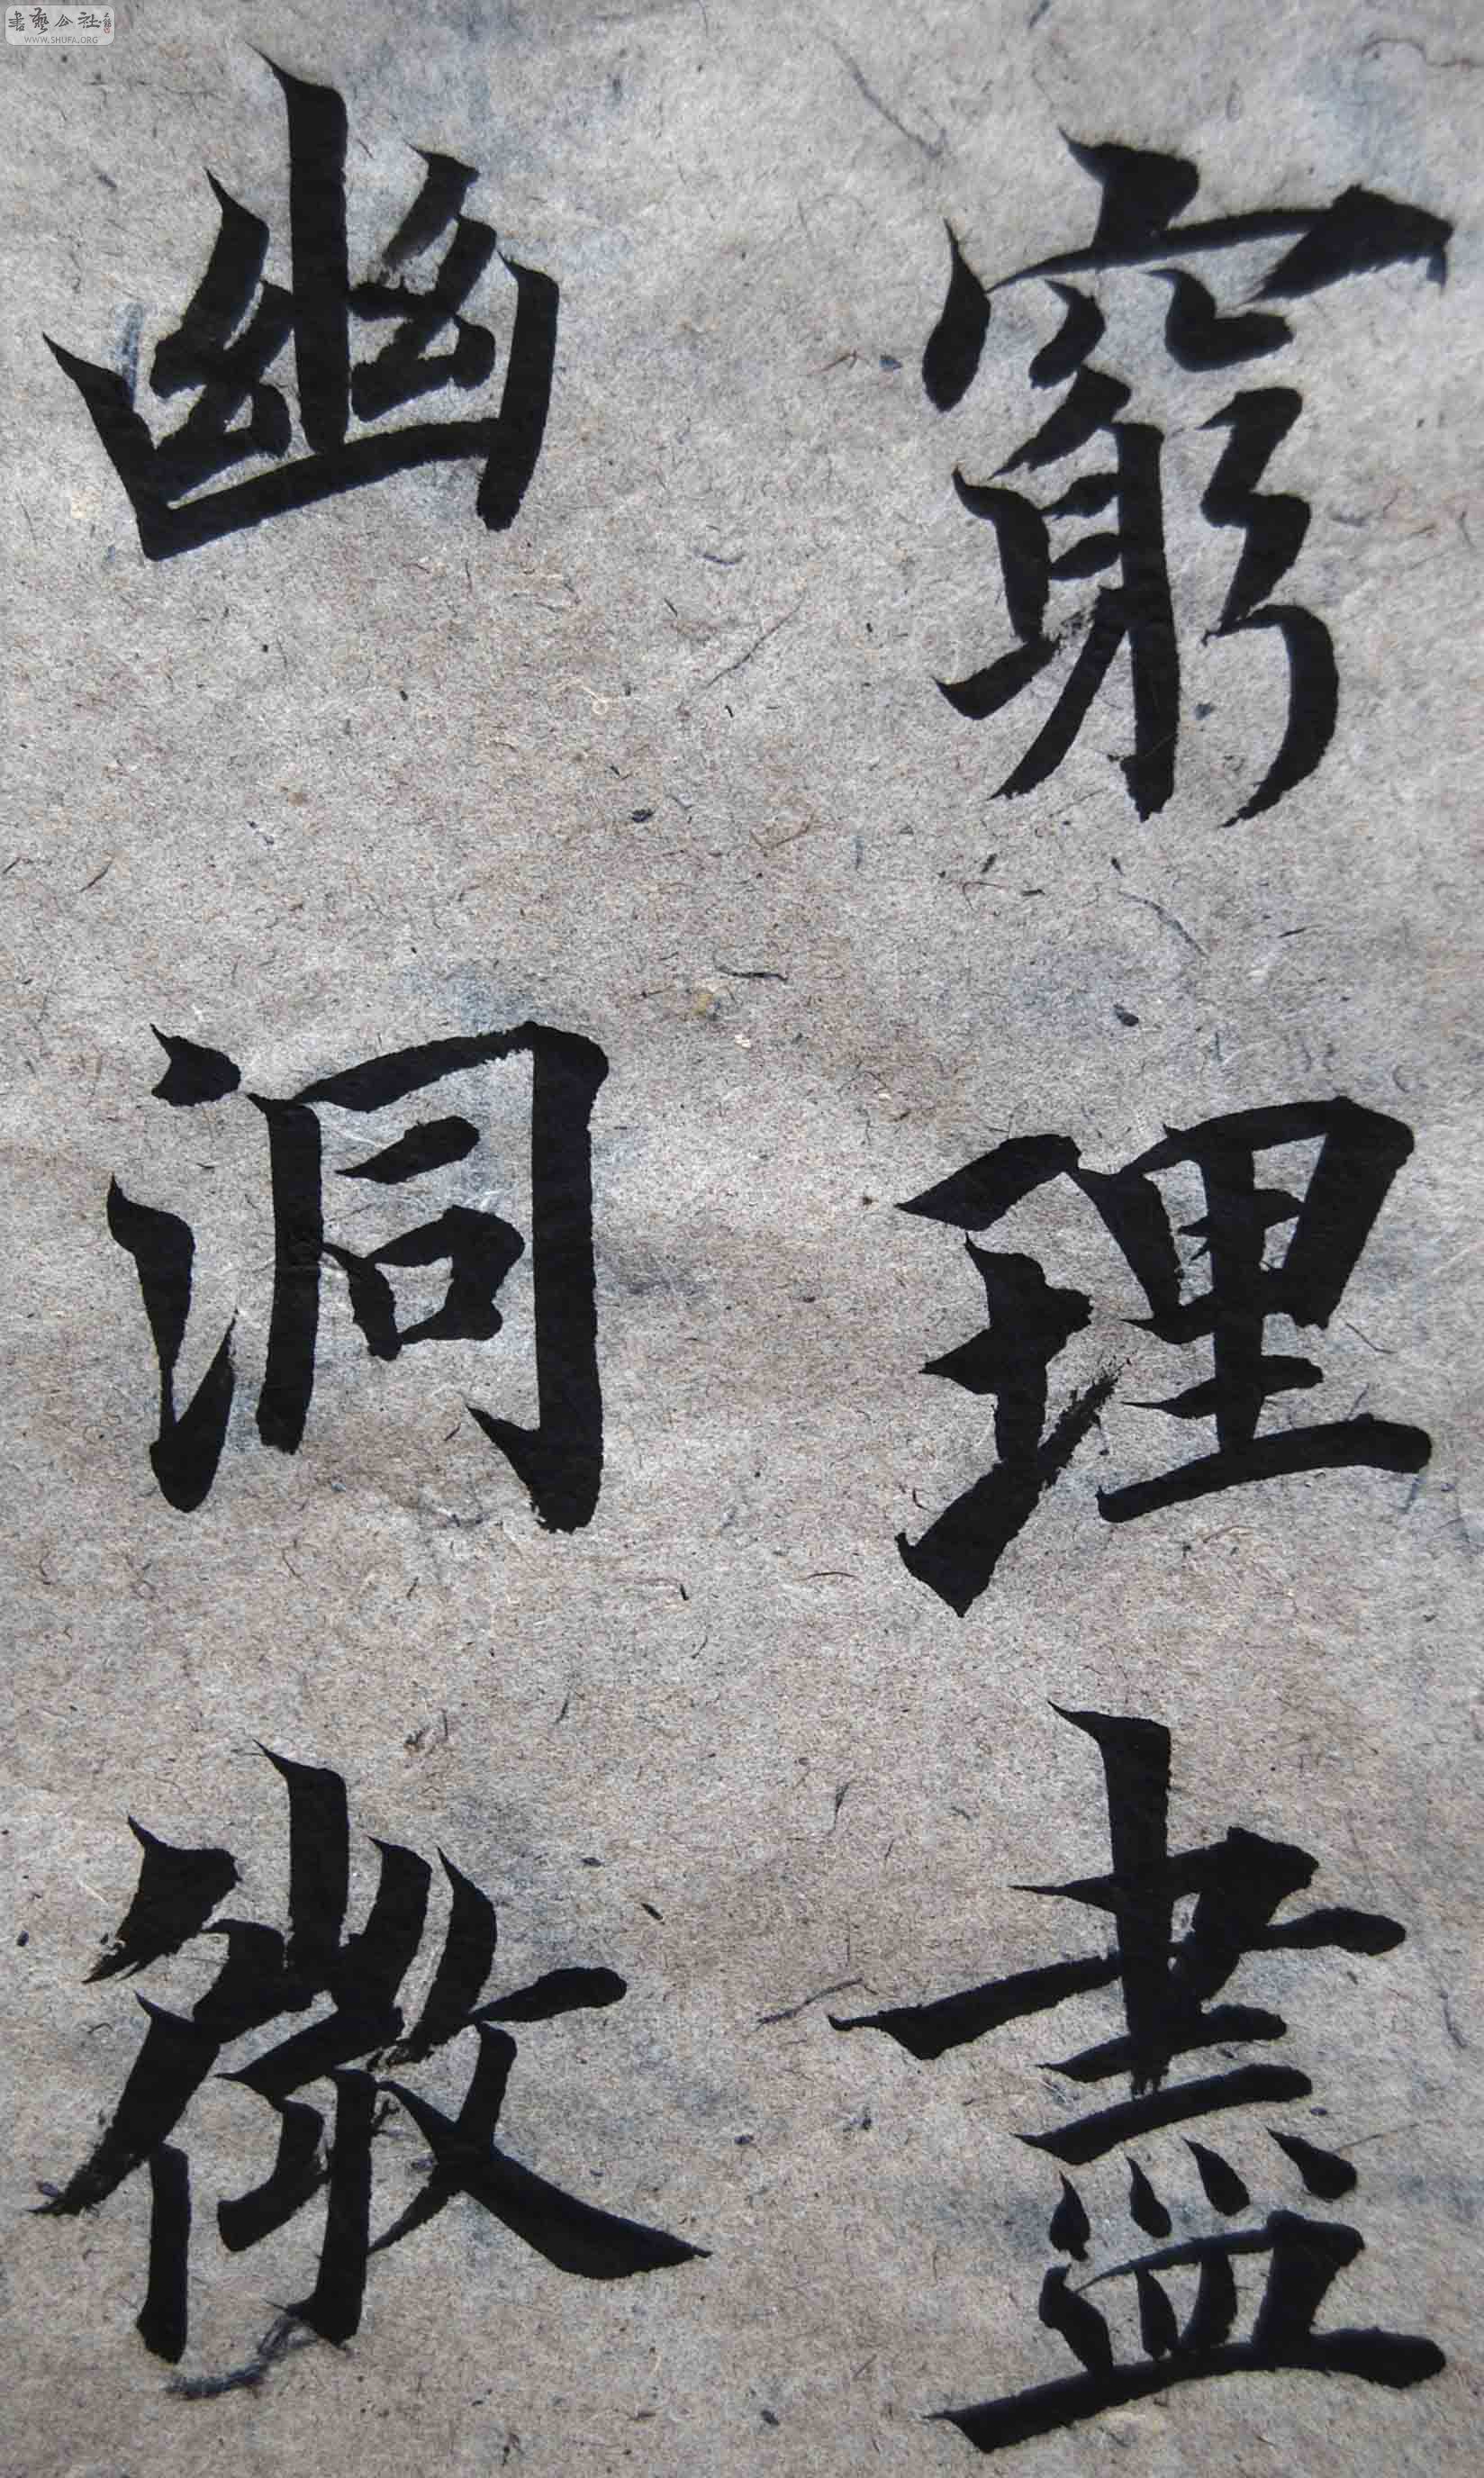 窮理盡
幽洞微
書藝公社
WWW.SHUFA.ORG